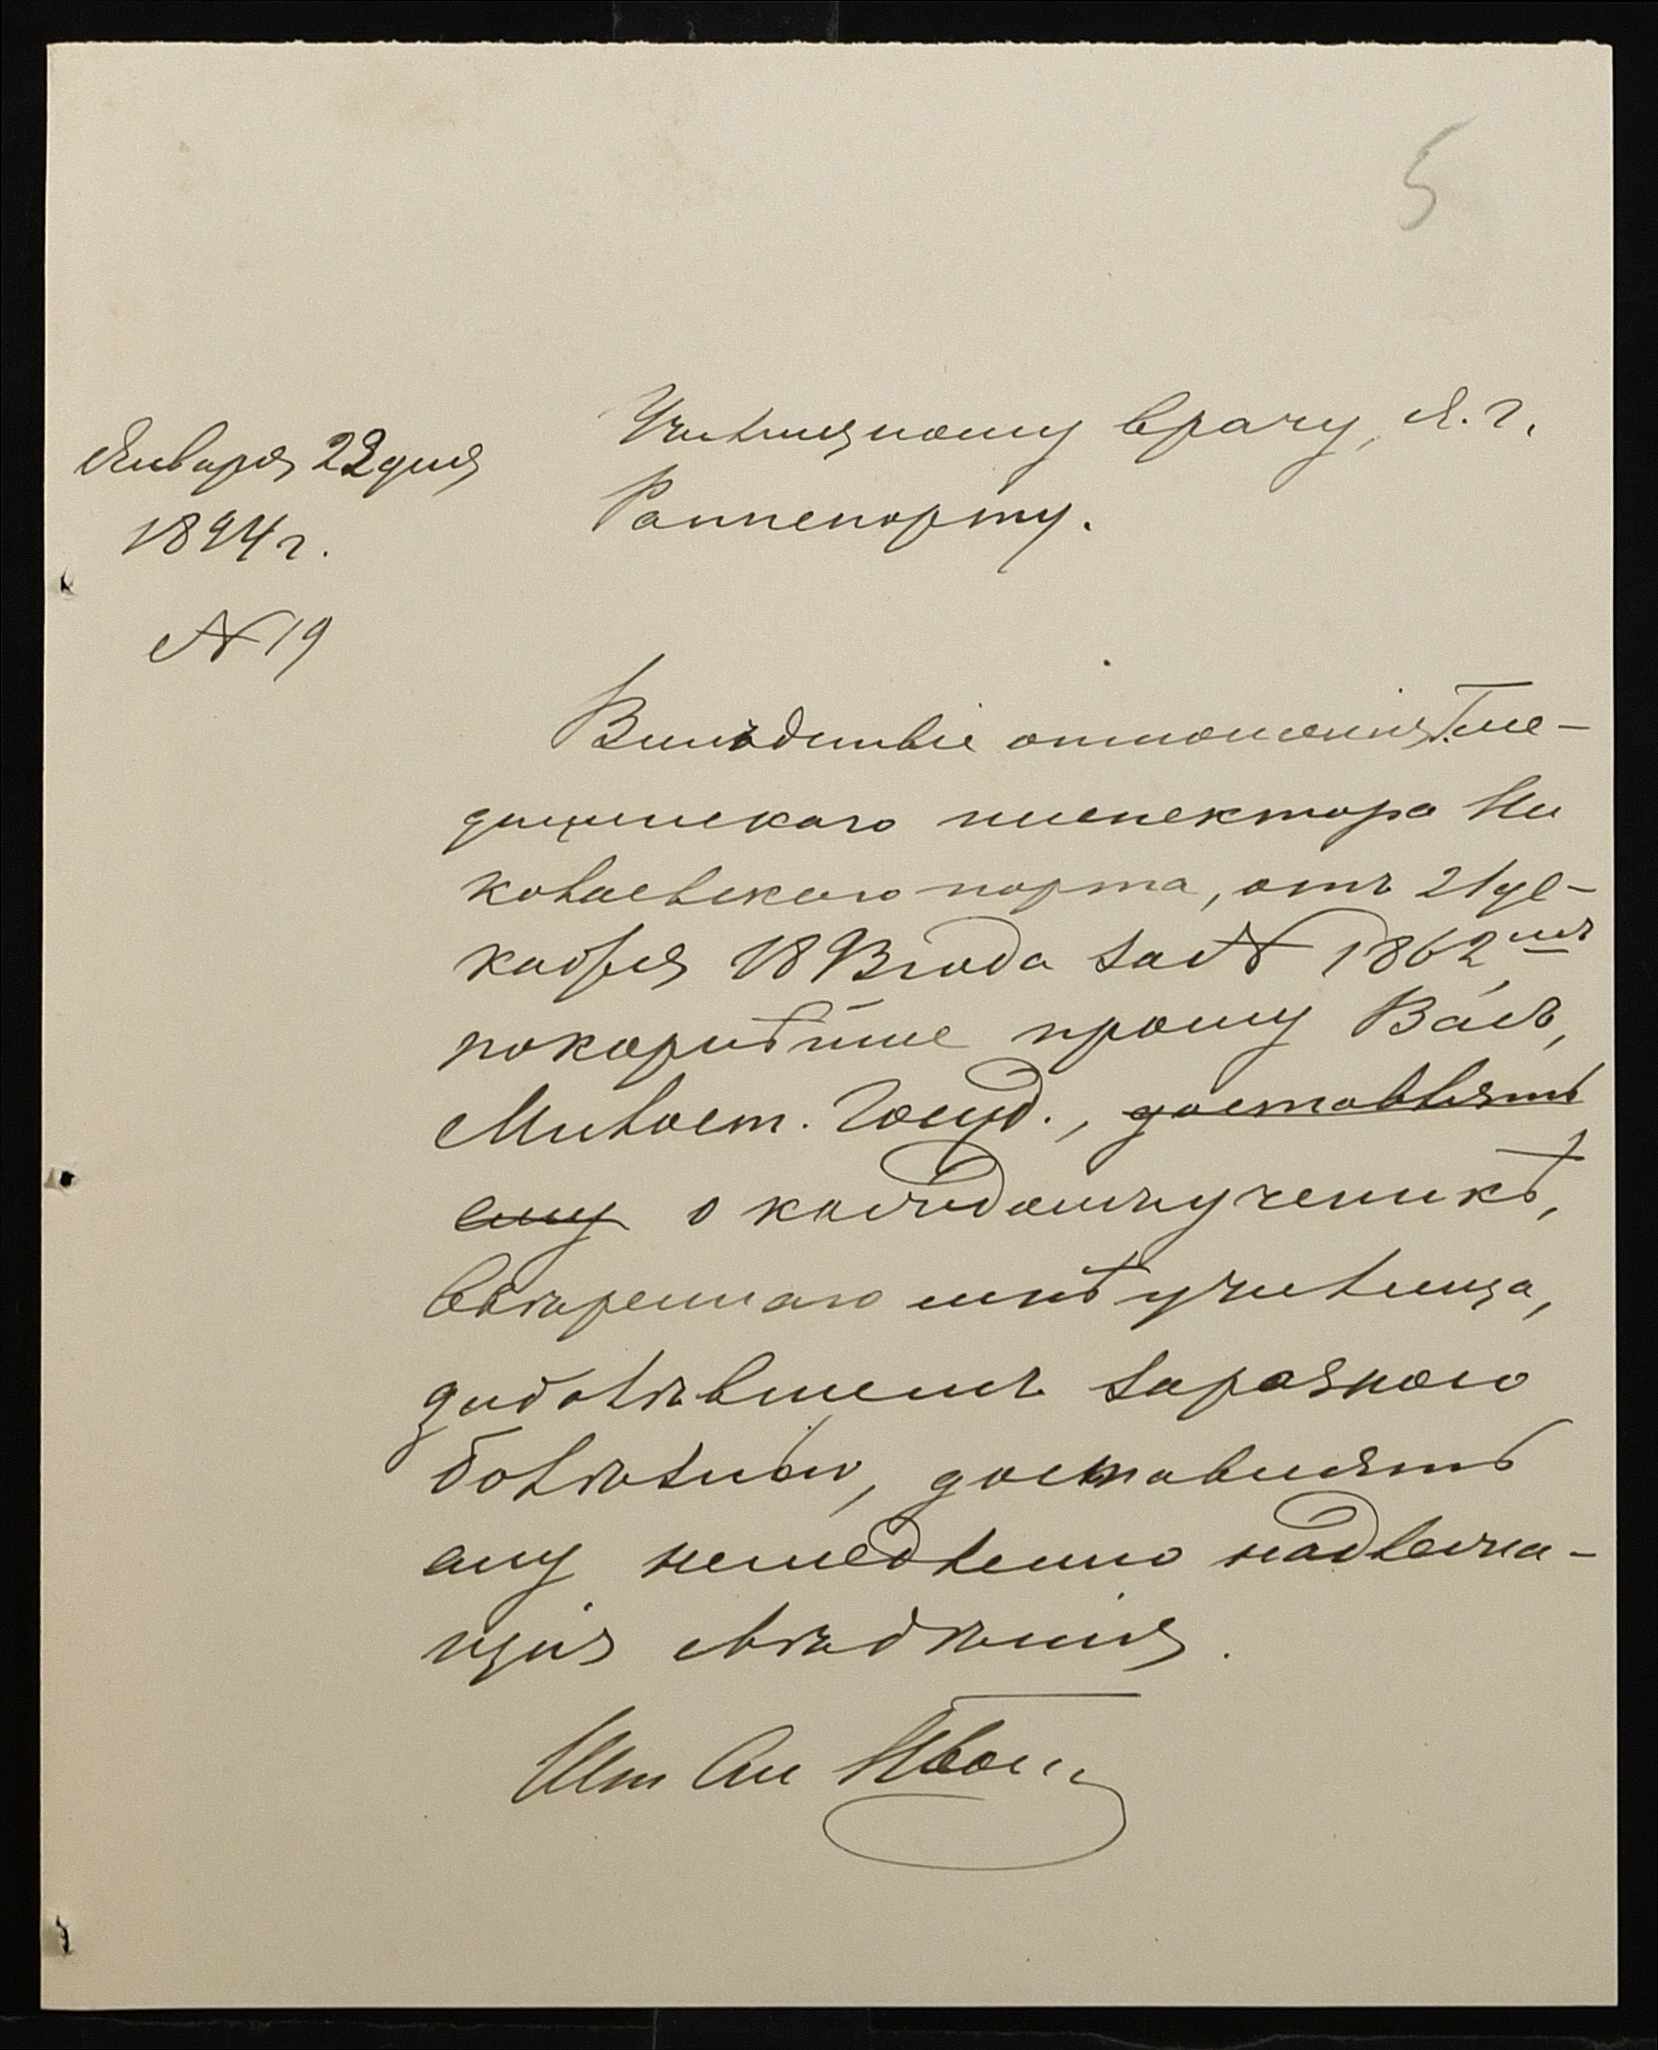 5
Января 22 дня
1894 г.
№ 19
Училищному врачу, Я. Г.
Раппепорту.
Вслѣдствіе отношенія Г. ме-
дицинскаго инспектора Ни
колаевскаго порта, отъ 21 де-
кабря 1893 года за № 1862,
покорнѣйше прошу Васъ,
Милост. Госуд., доставлять
ему о каждомъ ученикѣ,
ввѣреннаго мнѣ училища,
заболѣвшемъ заразною
болѣзнью, доставлять
ему немедленно надлежа-
щія свѣдѣнія.